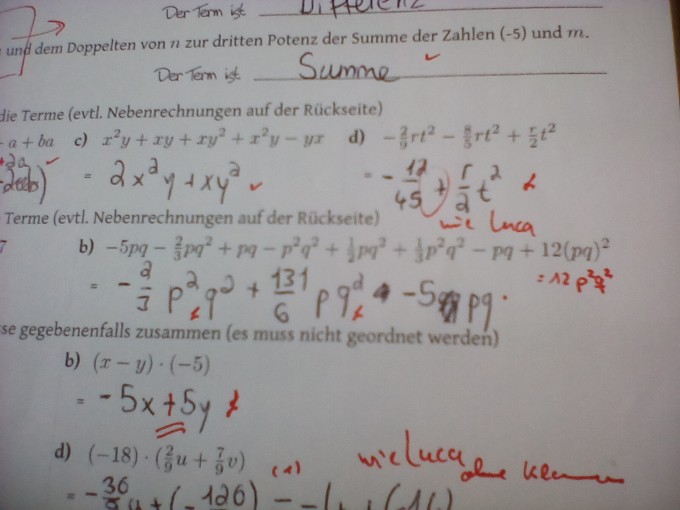 Der Term ist Differenz
und dem Doppelten von n zur dritten Potenz der Summe der Zahlen (-5) und m.
Der Term ist Summe
die Terme (evtl. Nebenrechnungen auf der Rückseite)
+ a + ba c) x²y + xy + xy² + x²y − yx d) −2/9rt² − 8/5rt² + r/2t²
+2a = 2x²y + xy² = −12/45 + r/2 t²
wie Luca
Terme (evtl. Nebenrechnungen auf der Rückseite)
7 b) −5pq − 2/3pq² + pq − p²q² + 1/2pq² + 1/3p²q² − pq + 12(pq)²
= 12 p²q²
= −2/3 p²q² + 131/6 pq² −5 pq.
sse gegebenenfalls zusammen (es muss nicht geordnet werden)
b) (x − y) · (−5)
= −5x + 5y
d) (−18) · (2/9u + 7/9v) (1) wie Luca ohne